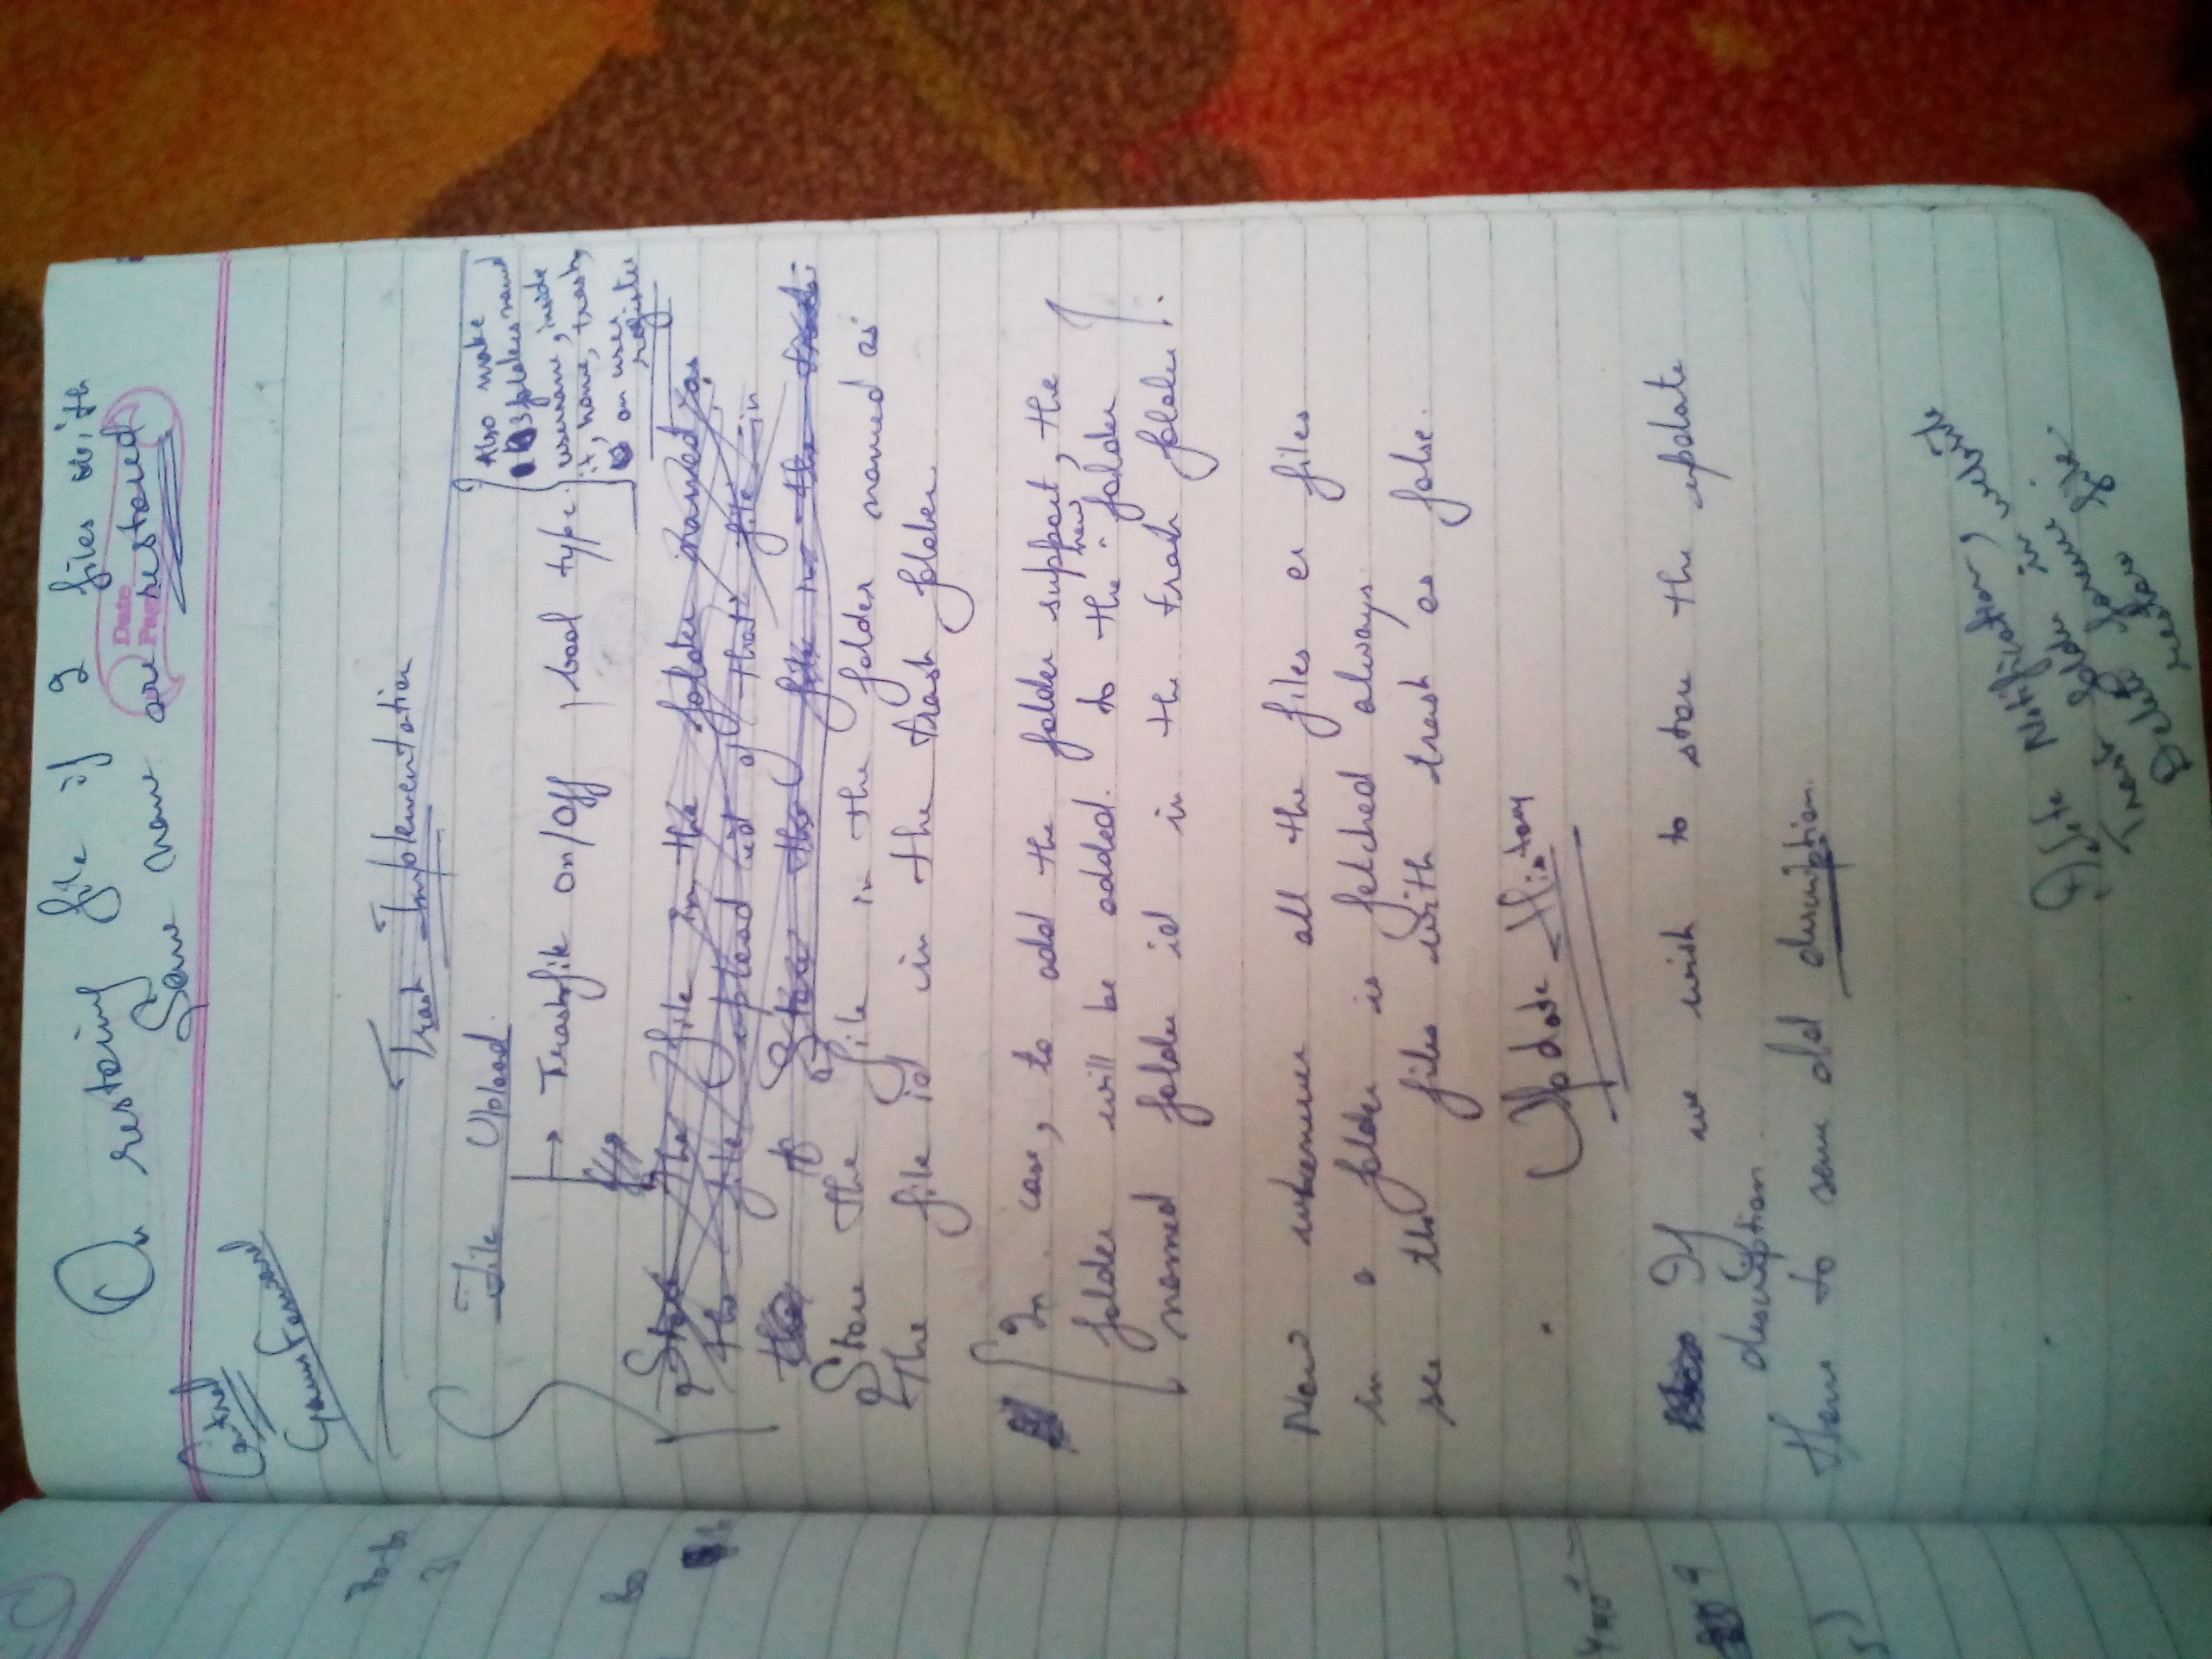 On restoring file if 2 files with
Same name are restored
Date
Page
Central
Gauss Forward
Trash Implementation
File Upload
Trashfile on/off, bool type.
Also make
3 folders named
username, inside
it, home, trash,
on user
register
Store the file in the folder named as
the file upload id of that file in
the Store the file in the trash
Store the file in the folder named as
the file id in the trash folder.
In case, to add the folder support, the
folder will be added. to the new folder
named folder id in the trash folder.
Now whenever all the files or files
in a folder is fetched always
see the files with trash as false.
Update History
If we wish to store the update
description.
Have to save old description.
Delete Notification,
Trash folder in website
Delete
restore file.